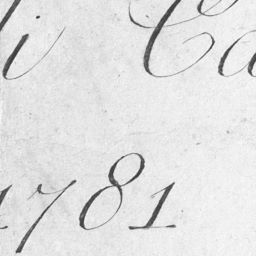 li Ca
1781